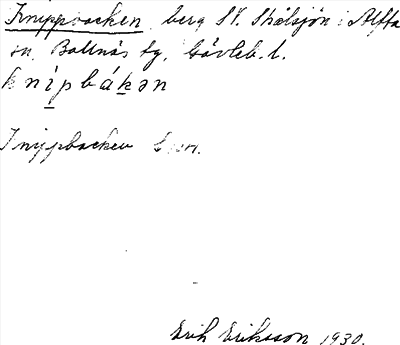 Knippbacken, berg SV. Skålsjön i Alfta
sn, Bollnäs tg, Gävleb. l.
knìpbákən
Knippbacken
Erik Eriksson 1930.